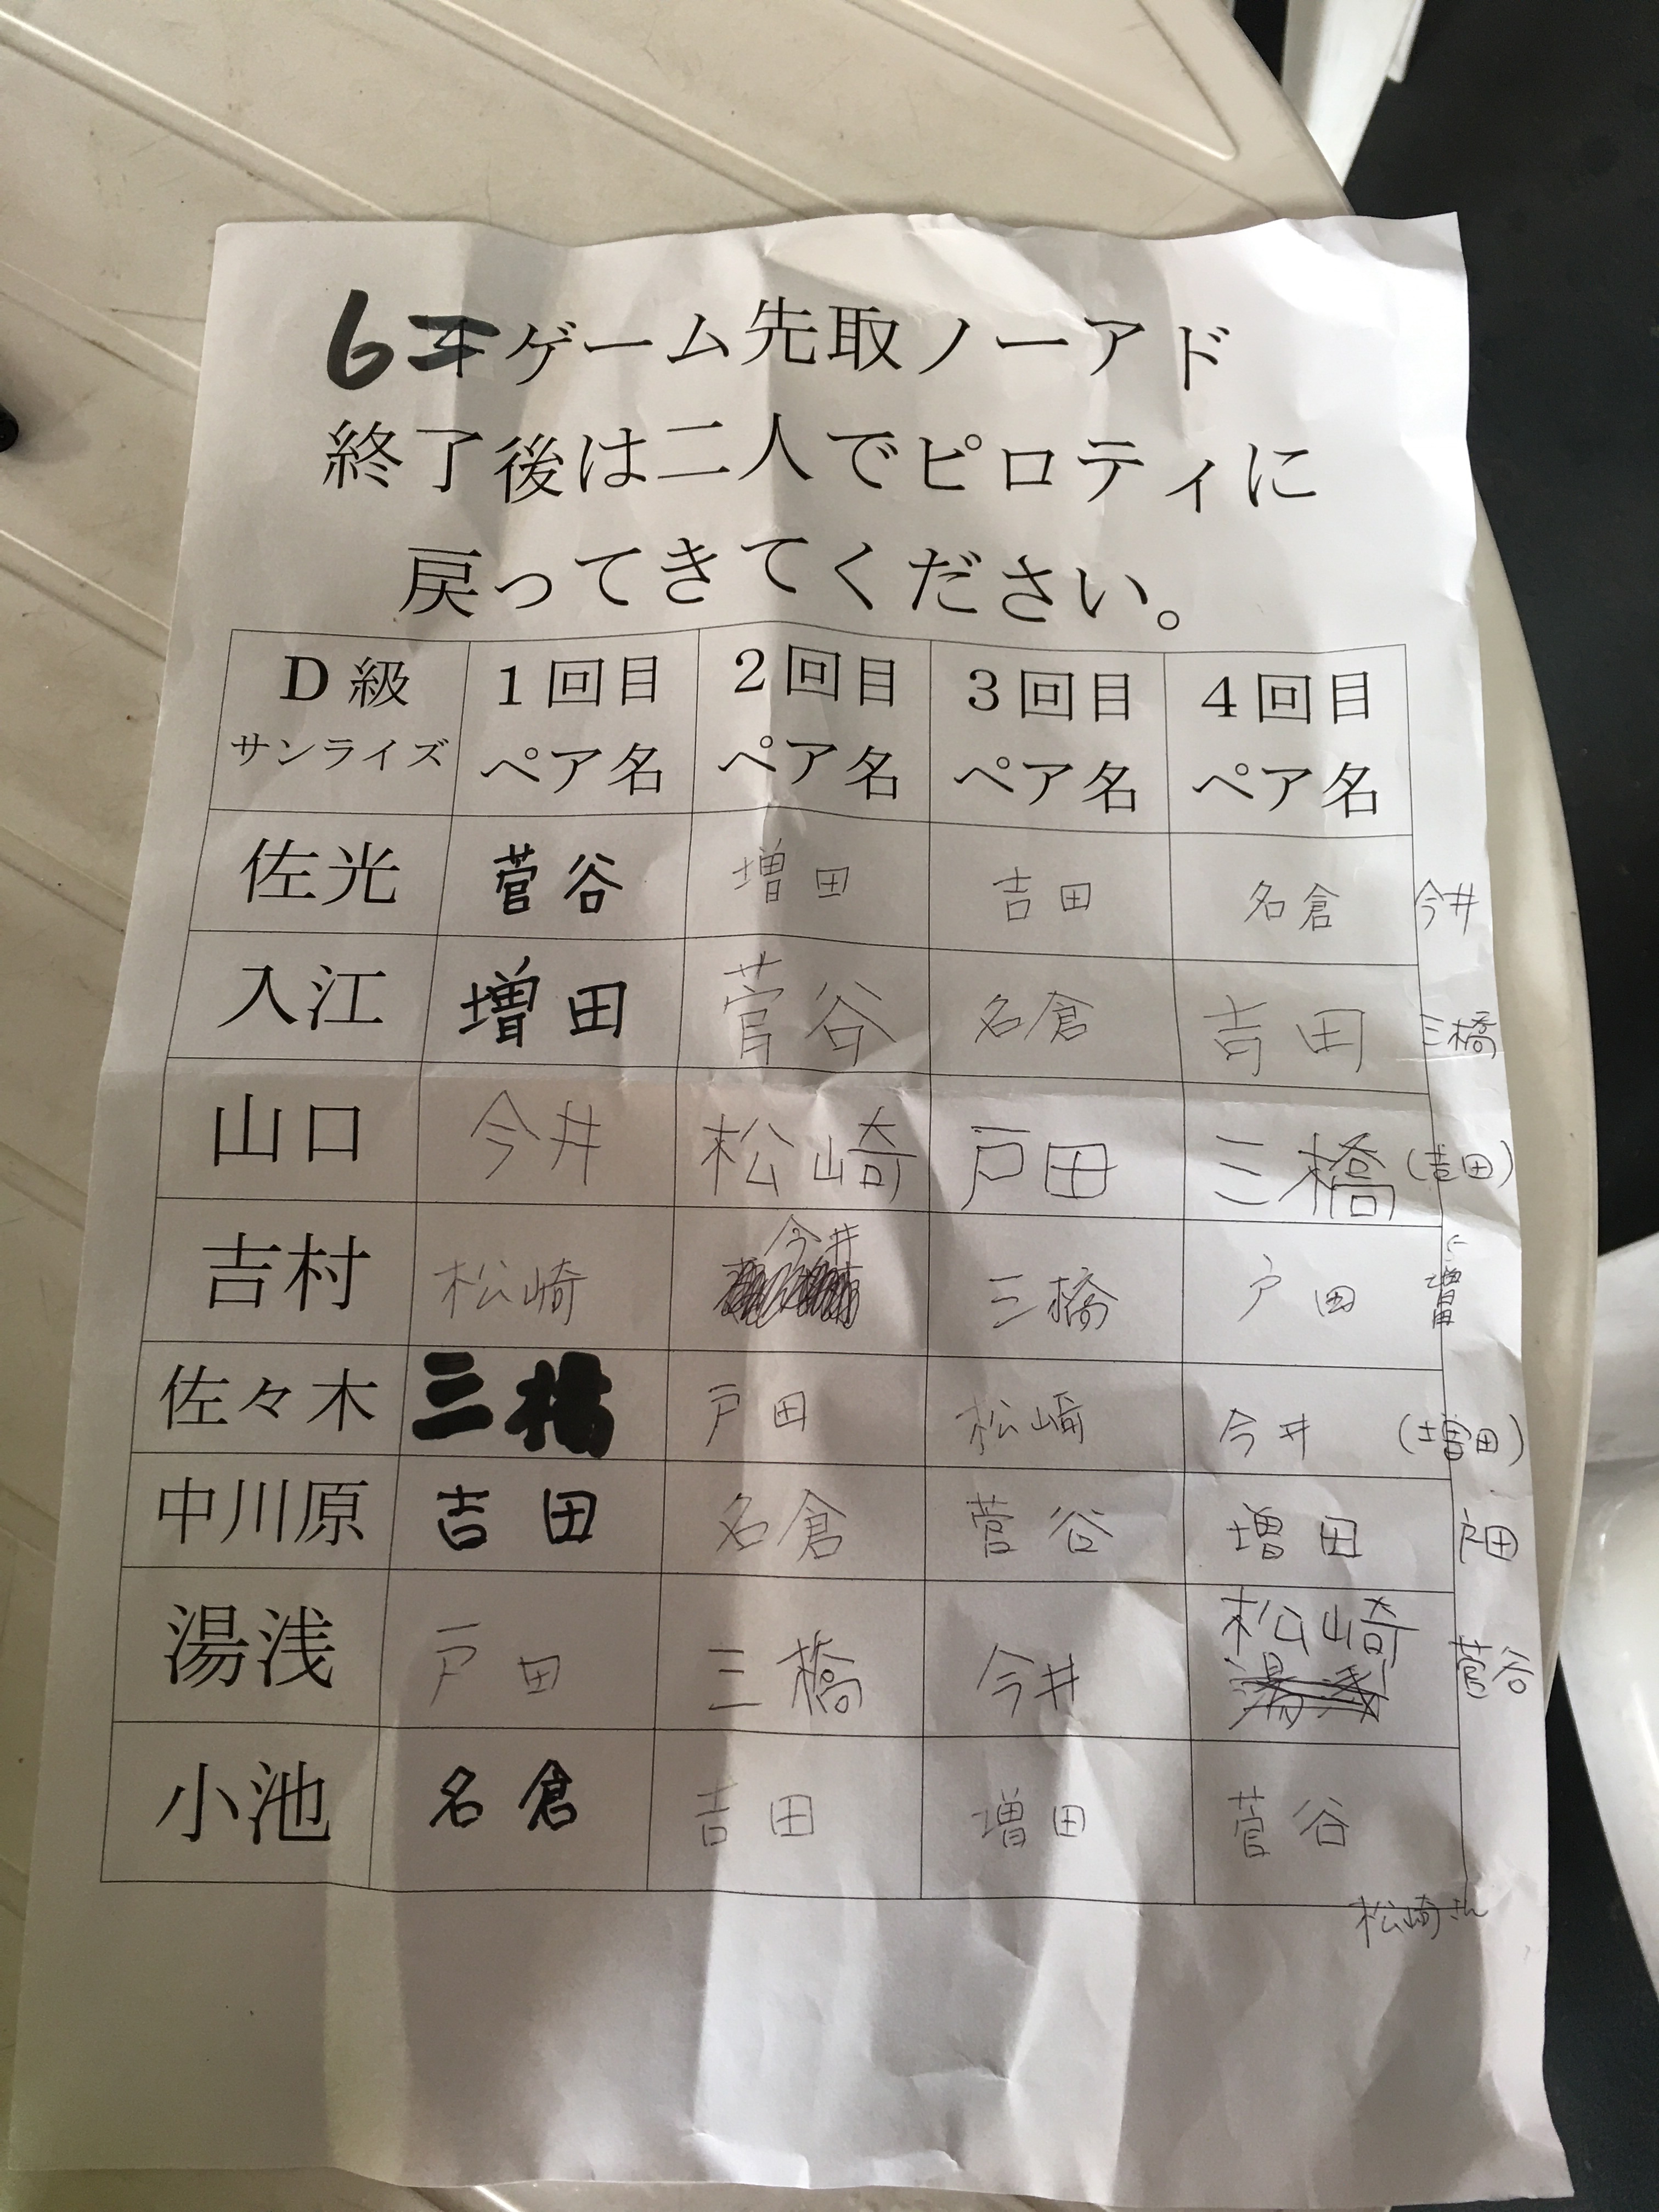 6ゲーム先取ノーアド
終了後は二人でピロティに
戻ってきてください。
D級 1回目 2回目 3回目 4回目
サンライズ ペア名 ペア名 ペア名 ペア名
佐光 菅谷 増田 吉田 名倉 今井
入江 増田 菅谷 名倉 吉田 三橋
山口 今井 松崎 戸田 三橋 (吉田)
吉村 松崎 今井 三橋 戸田 増田
佐々木 三橋 戸田 松崎 今井 (増田)
中川原 吉田 名倉 菅谷 増田 戸田
湯浅 戸田 三橋 今井 松崎 菅谷
湯浅
小池 名倉 吉田 増田 菅谷
松崎さん